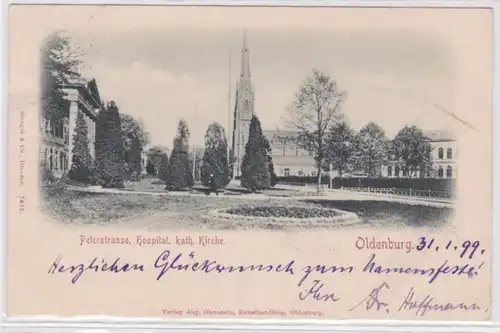 Stengel & Co., Dresden. 7432.
Peterstrasse, Hospital, kath. Kirche.
Oldenburg. 31.1.99.
Herzlichen Glückwunsch zum Namensfeste!
Ihr
Dr. Hoffmann
Verlag Aug. Ohmstede, Kunsthandlung, Oldenburg.